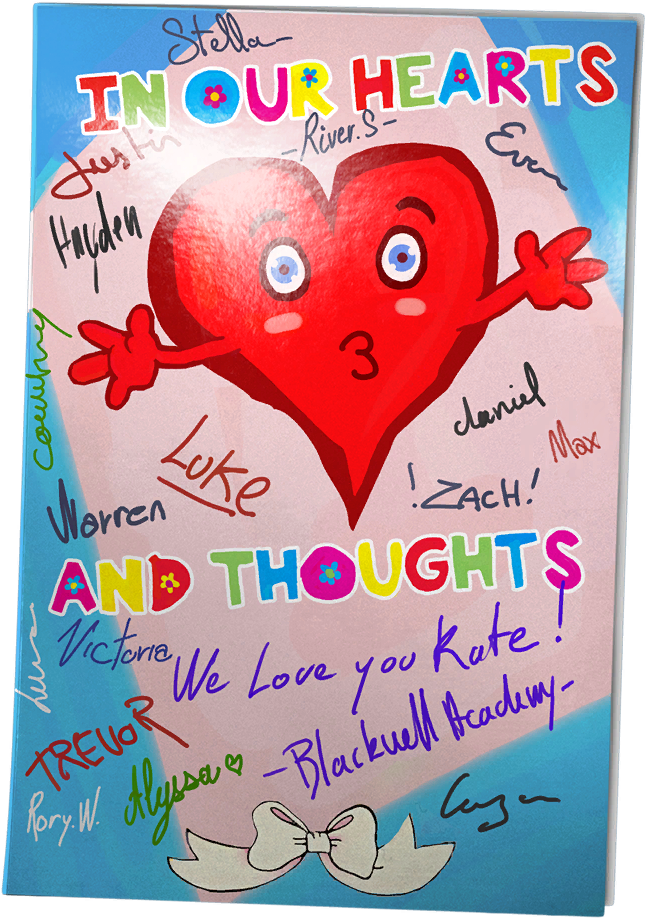 Stella
IN OUR HEARTS
Justin
-River.S-
Evan
Hayden
Courtney
daniel
Max
Luke
!ZACH!
Warren
AND THOUGHTS
Victoria
We Love you Kate!
-Blackwell Academy-
TREVOR
Alyssa
Rory.W.